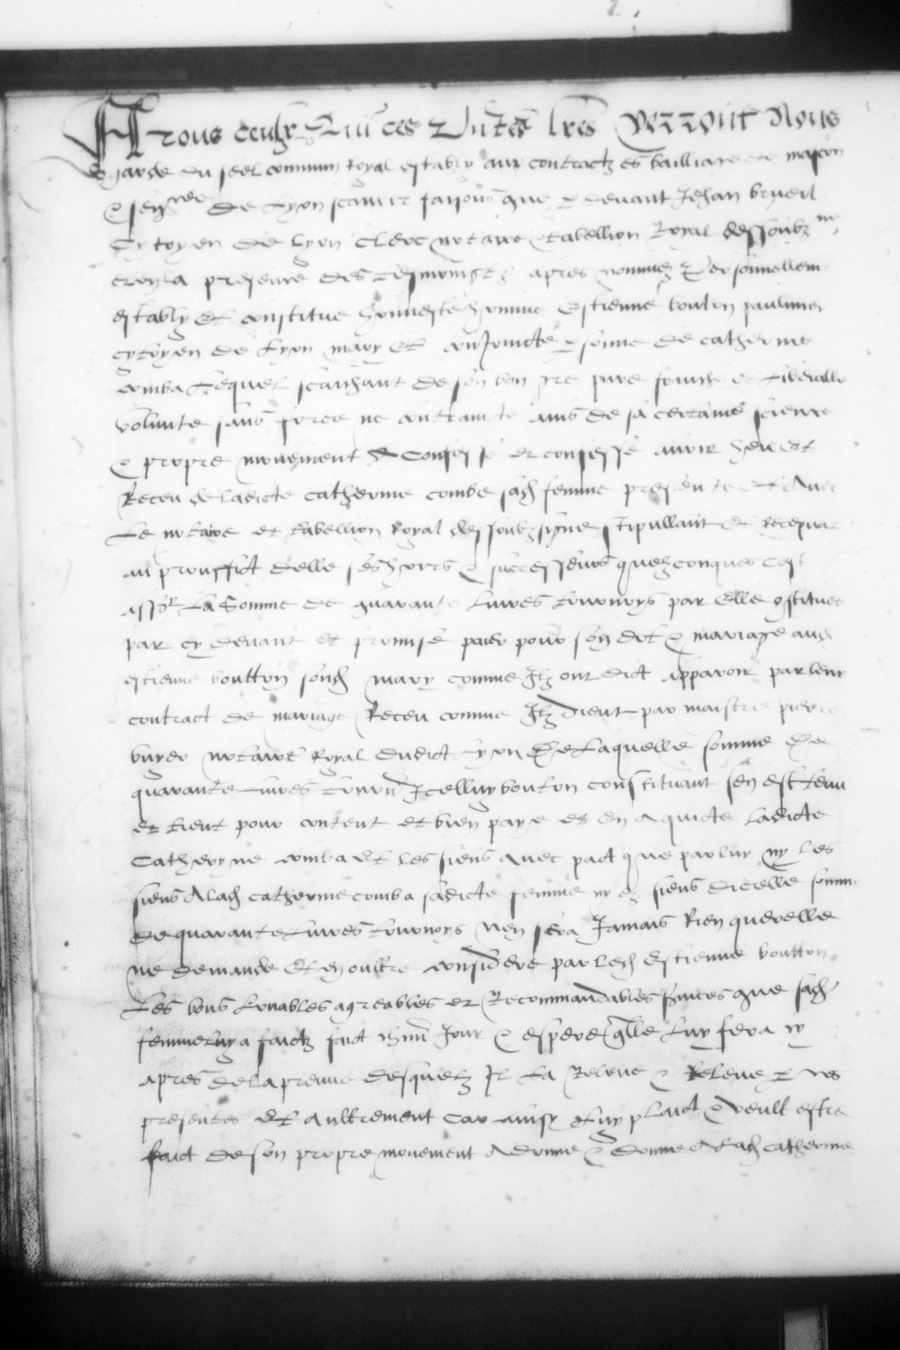 A tous ceulx qui ces pntes lres verront Nous
garde du seel commun royal estably aux contractz es bailliage de mascon
& senes de Lyon scavoir faisons que p devant Jehan brueil
Cytoyen de lyon clerc notaire & tabellion Royal dessoubz
et en la presence des tesmoingtz apres nommez Personnellemt
estably Et constitue honneste homme Estienne bouton paulmier
cytoyen de Lyon mary Et conjoincte psonne de catherine
comba Lequel scaichant de son bon gre pure franche et Liberalle
volunte sans force ne contraincte ains de sa certaine science
& propre mouvement A Confesse et confesse avoir heu Et
Receu de ladicte catherine combe sad femme presente Et Avec
Le notaire et tabellion Royal dessoubz signe stipullant Et Recepvant
au prouffict delle ses hoirs & successeurs quelzconques Cest
assor La Somme de quarante Livres tournoys par Elle gstituee
par cy devant et promise paier pour son dot & mariage aud
estienne boutton sond mary comme Ilz ont dict apparoir par leur
contract de mariage Receu comme Ilz dient par maistre pierre
buyer notaire Royal dudict Lyon De Laquelle somme De
quarante Livres tourn Icelluy bouton constituant sen est tenu
et tient pour content et bien paye et en a quicte Ladicte
Catheryne comba et les siens avec pact que par luy ny les
siens A lad catherine comba sadicte femme ny es siens dicelle somme
De quarante Livres tournoys nen sera Jamais Rien querelle
ne demande Et en oultre considere par led estienne boutton
Les bons Louables agreables et Recommandables svices que sad
femme luy a faictz faict Jour & espere qlle luy fera cy
apres de la preuve desquelz Il La Releve & Releve p ces
presentes Et Aultrement Car ainsy Luy plaict & veult estre
faict de son propre mouvement A donne & donne A lad catherine